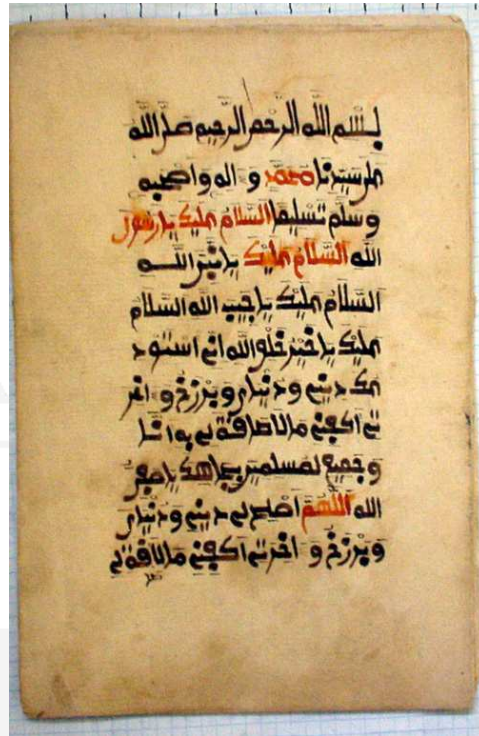 بسم الله الرحمن الرحيم صلى الله
على سيدنا محمد و اله و اصحبه
وسلم تسليما السلام عليك يا رسول
الله السلام عليك يا نبي الله
السلام عليك يا حبيب الله السلام
عليك يا خير خلق الله اني استود
عك ديني و دنياي و برزخي و اخر
تي اكفني ما لا طاقة لي به انا
و جميع لمسلمين بجاهك يا صفي
الله اللهم اصلح لي ديني و دنياي
و برزخي و اخرتي اكفني ما لا طاقة لي